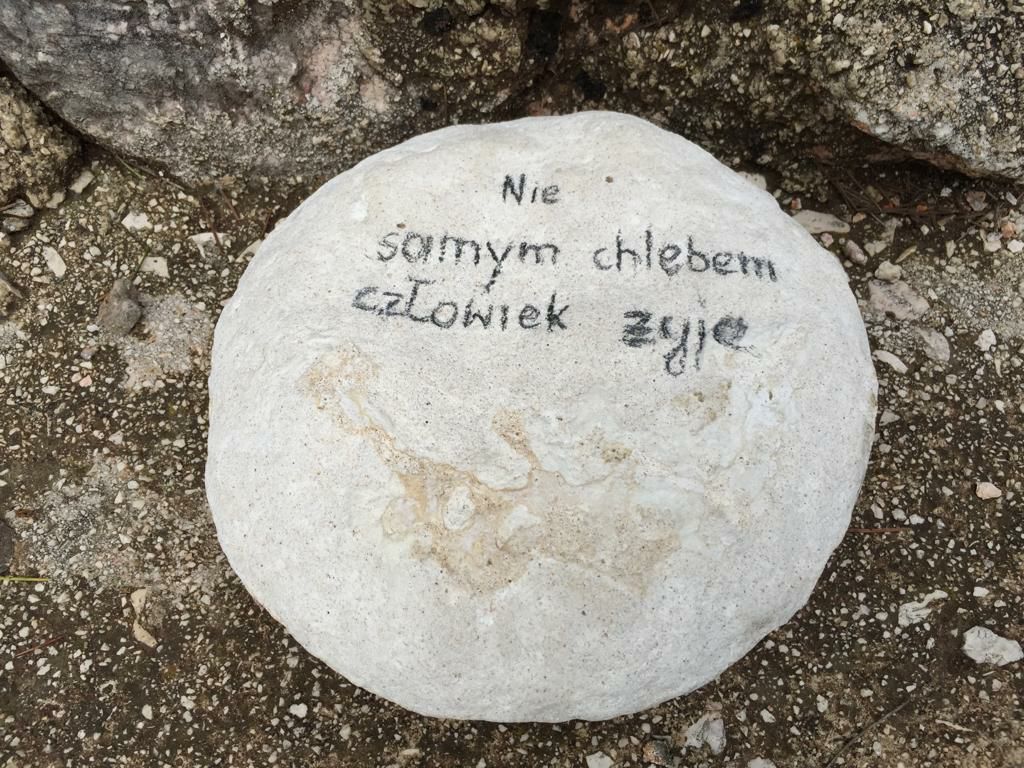 Nie
samym chlebem
człowiek żyje